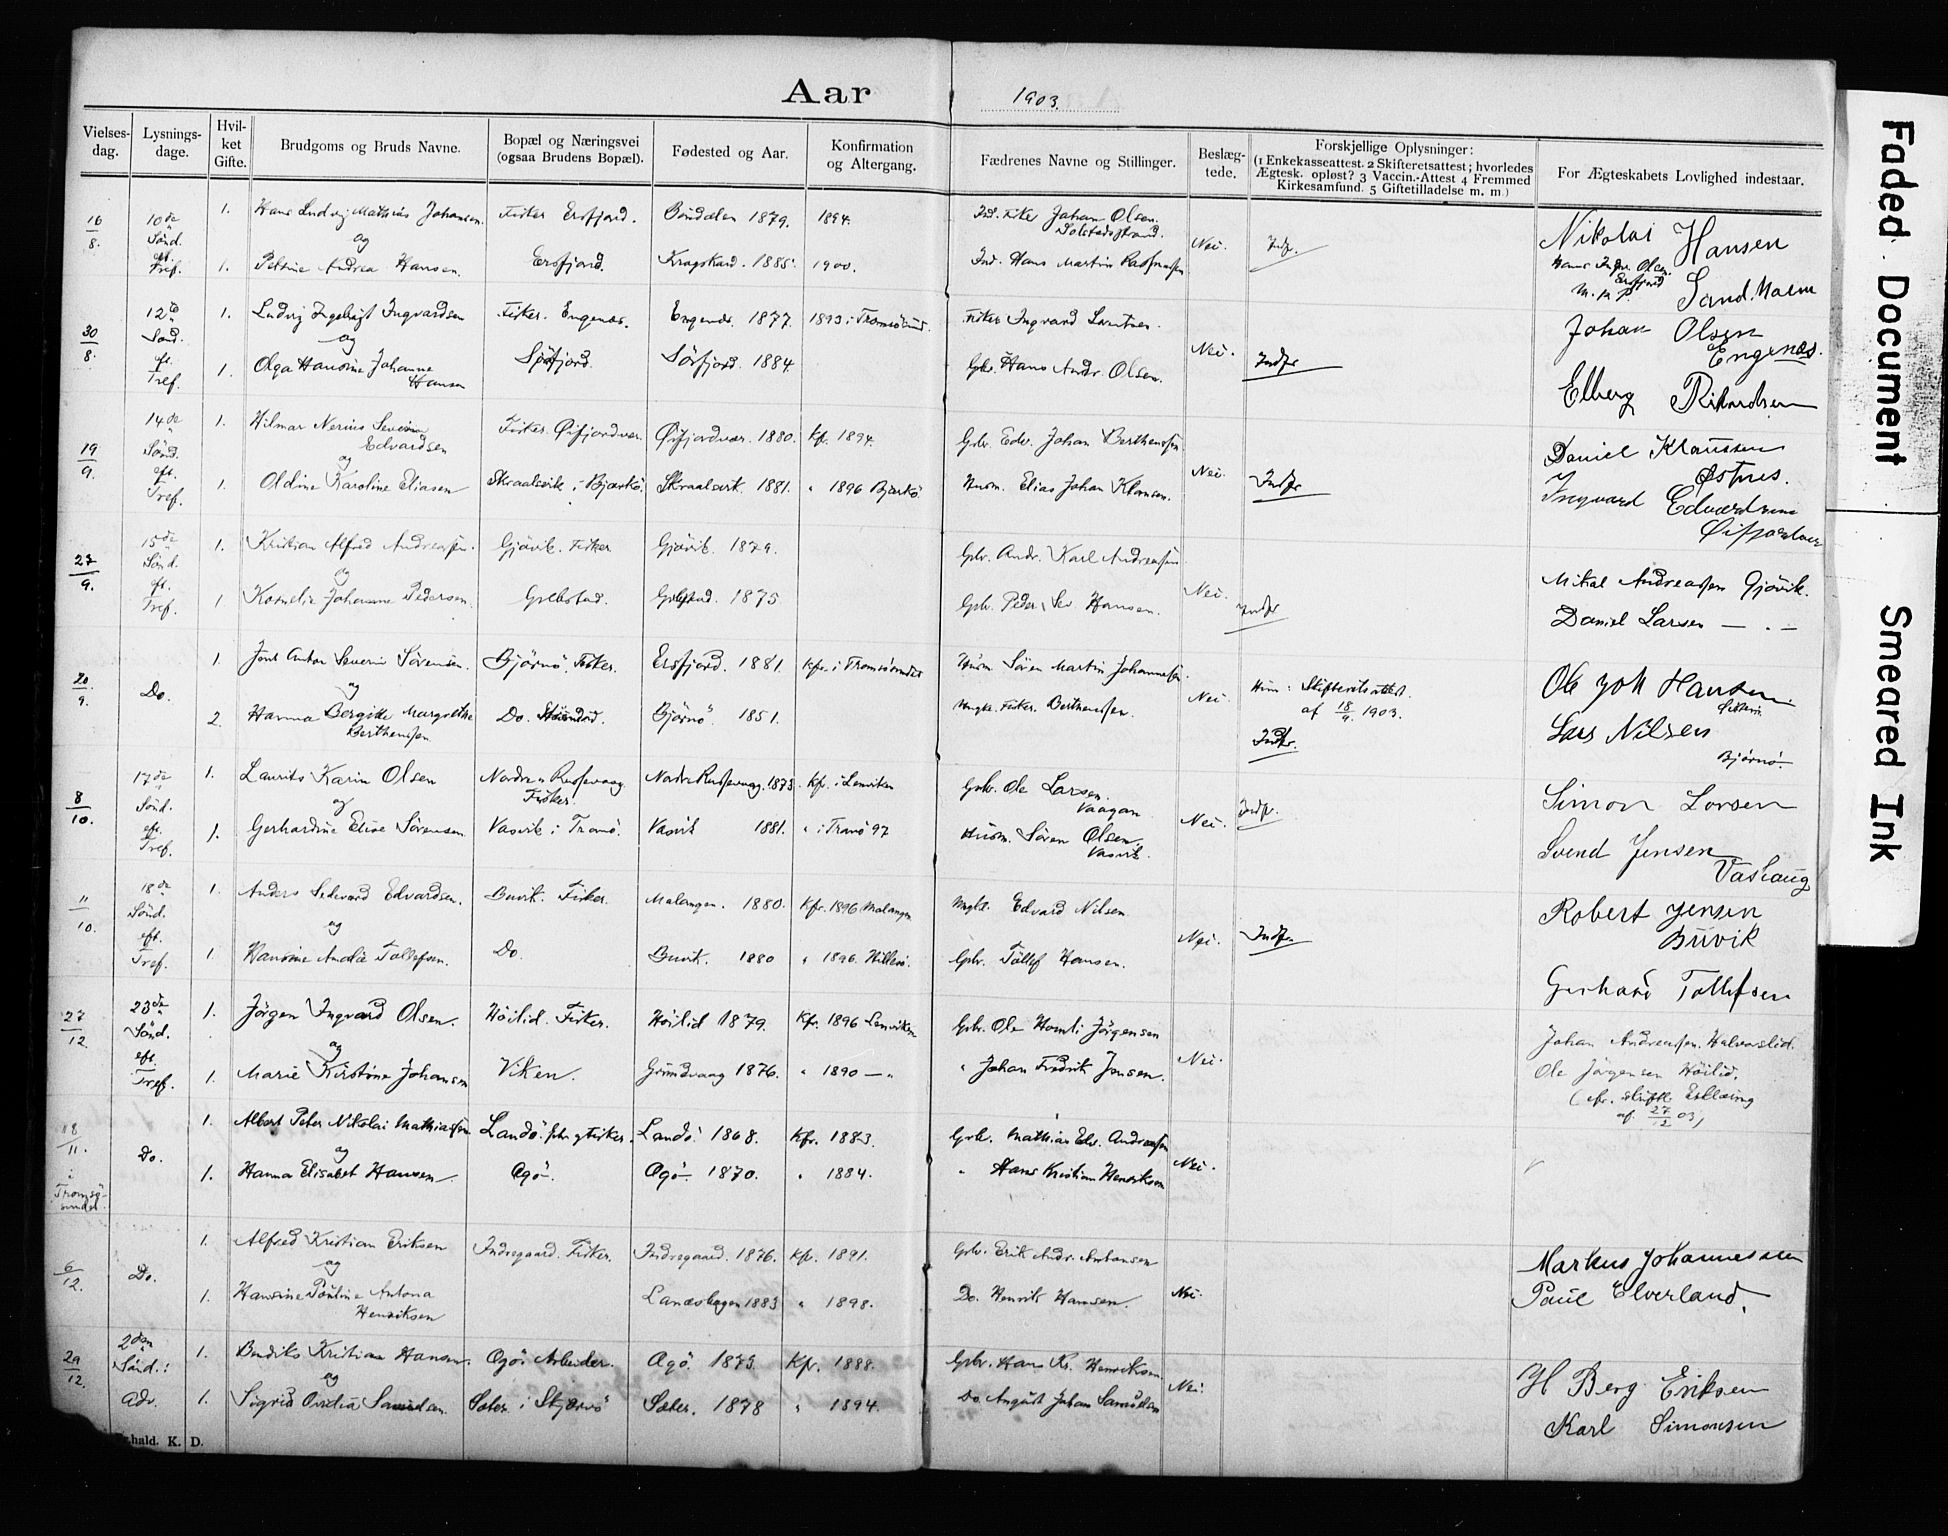 Aar 1903.
Vielses-dag. Lysnings-dage. Hvil-ket Gifte. Brudgoms og Bruds Navne. Bopæl og Næringsvei (ogsaa Brudens Bopæl). Fødested og Aar. Konfirmation og Altergang. Fædrenes Navne og Stillinger. Beslæg-tede. Forskjellige Oplysninger: (1 Enkekasseattest. 2 Skifteretsattest; hvorledes Ægtesk. opløst? 3 Vaccin.-Attest 4 Fremmed Kirkesamfund. 5 Giftetilladelse m. m.) For Ægteskabets Lovlighed indestaar.
16/8. 10de Sönd. eft. Tref. 1. Hans Ludvig Mathias Johansen. Fisker Ersfjord. 1879. 1894. Ind. Fisker Johan Olsen. Nikolai Hansen
og Nei. Indfr.
1. Petrine Andrea Hansen. Ersfjord. Kragskard. 1885. 1900. Ind. Hans Martin Hans Ingv. Olsen. Ersfjord
30/8. 12te Sönd. eft. Tref. 1. Ludvig Ingebrigt Ingvardsen Fisker. Engenæs. Engenæs. 1877. 1893 i Tromsösund. Fisker Ingvard Johan Olsen Engenæs.
og Nei. Indfr
1. Olga Hansine Johanne Hansen Sörfjord. Sörfjord. 1884 Gbr. Hans Andr. Olsen. Elberg Rikardsen
19/9. 14de Sönd. eft. Tref. 1. Hilmar Nerius Severin Edvardsen Fisker. Öifjordvær. Öifjordvær. 1880. Kf. 1894. Gbr. Edv. Johan Berthensen Daniel Klaussen
og Nei. Indfr
1. Oldine Karoline Eliasen Skraalsvik i Bjarkö. Skraalsvik. 1881. " 1896 Bjarkö Husm. Elias Johan Klausen. Ingvard Edvardsen
27/9. 15de Sönd. eft. Tref. 1. Kristian Alfred Andreassen. Gjövik. Fisker Gjövik. 1879. Gbr. Andr. Karl Andreassen Mikal Andreassen Gjövik.
og Nei. Indfr
1 Kornelie Johanne Pedersen. Grebstad. Grebstad. 1875 Gbr. Peder Sev. Hansen. Daniel Larsen — . —
20/9. Do. 1. Anton Severin Sörensen. Björnö. Fisker. Ersfjord. 1881. Kfr. i Tromsösundet Husm. Sören Martin Johannesen Hun: Skifteretsattest. af 18/9. 1903. Ole Joh Hansen.
og Nei. Indfr.
2. Hanna Bergitte Margrethe Berthensen Do. Björnö 1851. Ungk. Fisker. Berthensen. Lars Nilsen Björnö.
8/10. 17de Sönd. eft. Tref. 1. Laurits Karin Olsen Nordre Russevaag Fisker. Nordre Russevaag. 1873. Kfr. i Lenviken Gbr. Ole Larsen. Vaagan Simon Larsen
og Nei. Indfr.
1. Gerhardine Elise Sörensen. Vasvik i Tranö. Vasvik 1881. " i Tranö 97 Husm. Sören Olsen. Vasvik. Svend Jensen
11/10. 18de Sönd. eft. Tref. 1. Anders Sedevard Edvardsen. Buvik. Fisker. Malangen. 1880. Kfr. 1896 Malangen Ungk. Edvard Nilsen Robert Jensen Buvik
og Nei. Indfr.
1. Hansine Tollefsen. Do. Buvik. 1880 " 1896. Hillesö. Gbr. Tollef Hansen. Gerhard Tollefsen
27/12. 23de Sönd. eft. Tref. 1. Jörgen Ingvard Olsen. Höilid. Fisker. Höilid 1879. Kfr. 1896 Lenviken Gbr. Ole Jörgensen Johan Andreassen. Halvarslid.
og Nei.
1. Marie Kirstine Johansen Viken. Grundvaag 1876. " 1890 — " " Johan Fredrik Jensen. Ole Jörgensen Höilid.
(cfr. skriftl Erklæring af 27/12 03)
18/11. i Tromsösundet Do. 1. Albert Peter Nikolai Mathiassen Landö. Fisker. Landö. 1868. Kfr. 1883. Gbr. Mathias Andreassen
og Nei.
1. Hanna Elisabet Hansen Ogö. Ogö. 1870. " 1884. " Hans Kristian Henriksen
6/12. Do. 1. Alfred Kristian Eriksen Indregaard. Fisker. Indregaard. 1876. Kfr. 1891. Gbr. Erik Andr. Antonsen Markus Johannessen
og Nei.
1. Hansine Pauline Antona Henriksen 1883 " 1898. Do. Henrik Hansen. Paul Elverland.
29/12. 2den Sönd. i Adv. 1. Bendiks Kristian Hansen. Ogö. Arbeider. Ogö. 1873. Kfr. 1888. Gbr. Hans Kr. Henriksen H Berg Eriksen
og Nei.
1. Sigrid Samuelsen. Sæter i Skjærvö Sæter. 1878 " 1894. Do. August Johan Samuelsen Karl Simonsen
hald. K. D.
Faded Document Smeared Ink